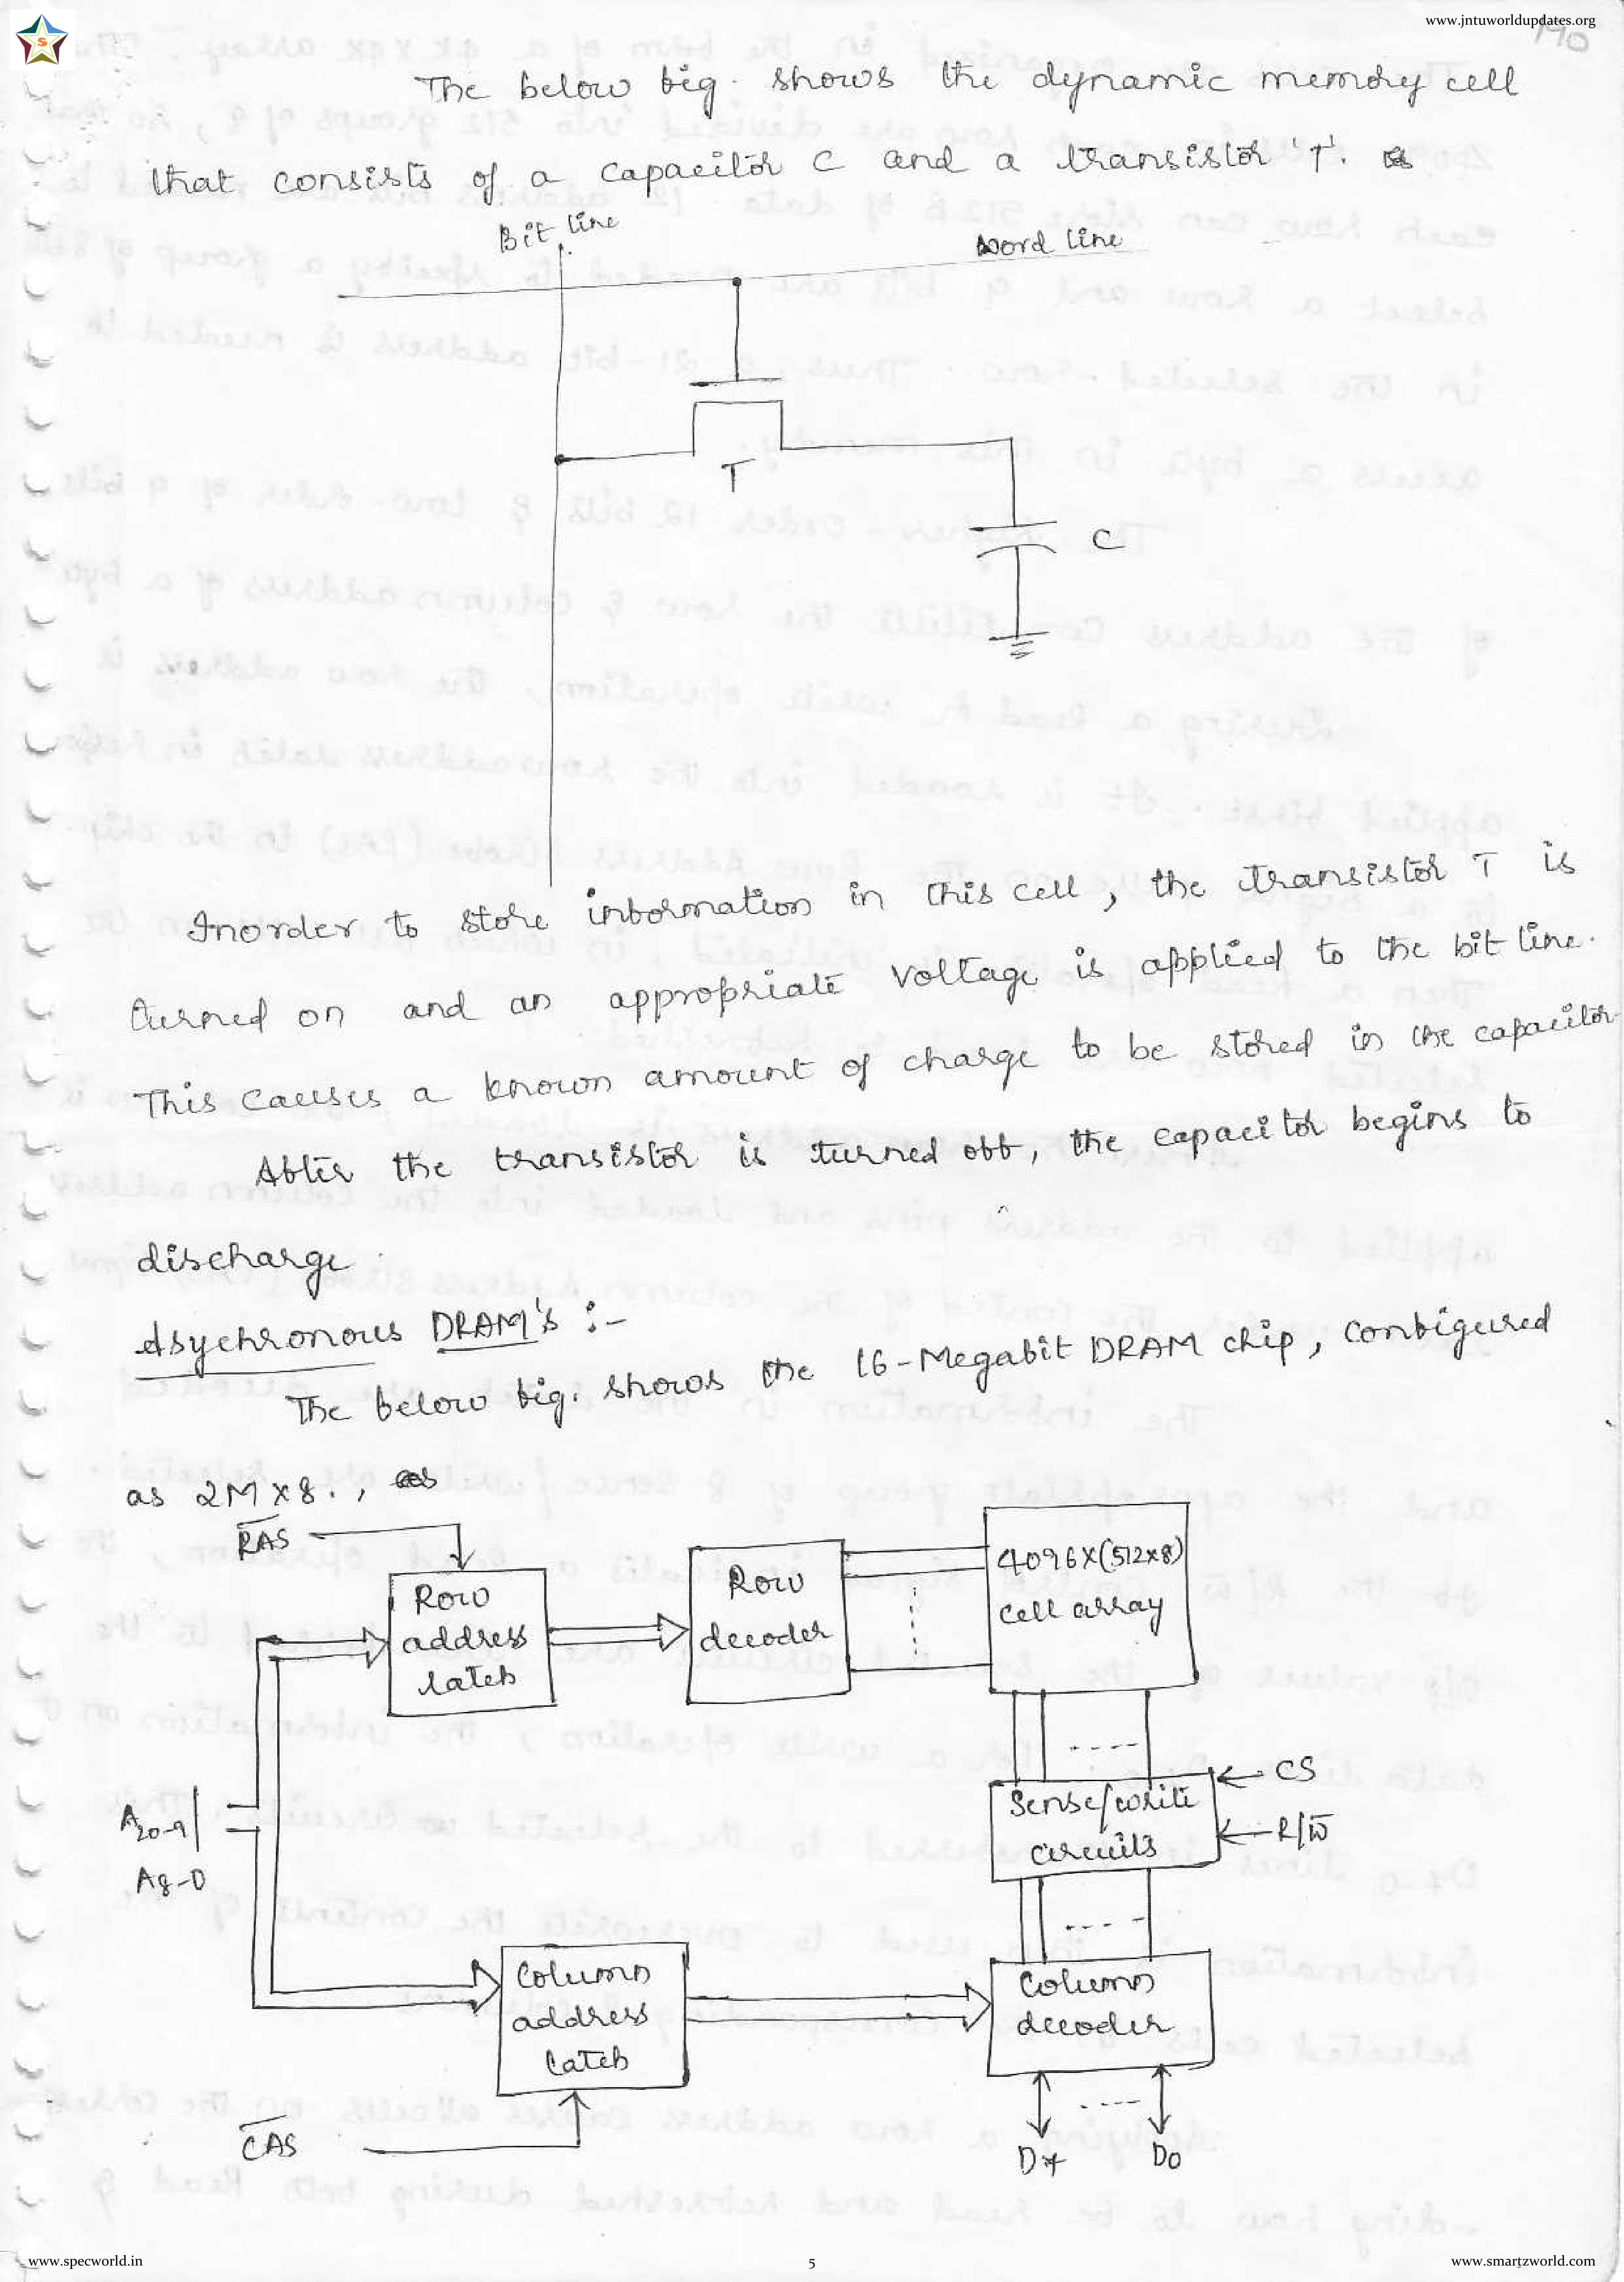 www.jntuworldupdates.org
190
S
The below fig. shows the dynamic memory cell
that consists of a capacitor C and a transistor 'T'. as
Bit line
Word line
T
C
Inorder to store information in this cell, the transistor T is
turned on and an appropriate voltage is applied to the bit line.
This causes a known amount of charge to be stored in the capacitor.
After the transistor is turned off, the capacitor begins to
discharge.
Asychronous DRAM's :-
The below fig. shows the 16-Megabit DRAM chip, configured
as 2M x 8., as
R̅A̅S̅
Row
address
latch
Row
decoder
4096x(512x8)
cell array
CS
Sense/write
circuits
R/W̅
A20-9
A8-0
Column
address
latch
Column
decoder
C̅A̅S̅
D7
D0
www.specworld.in
5
www.smartzworld.com